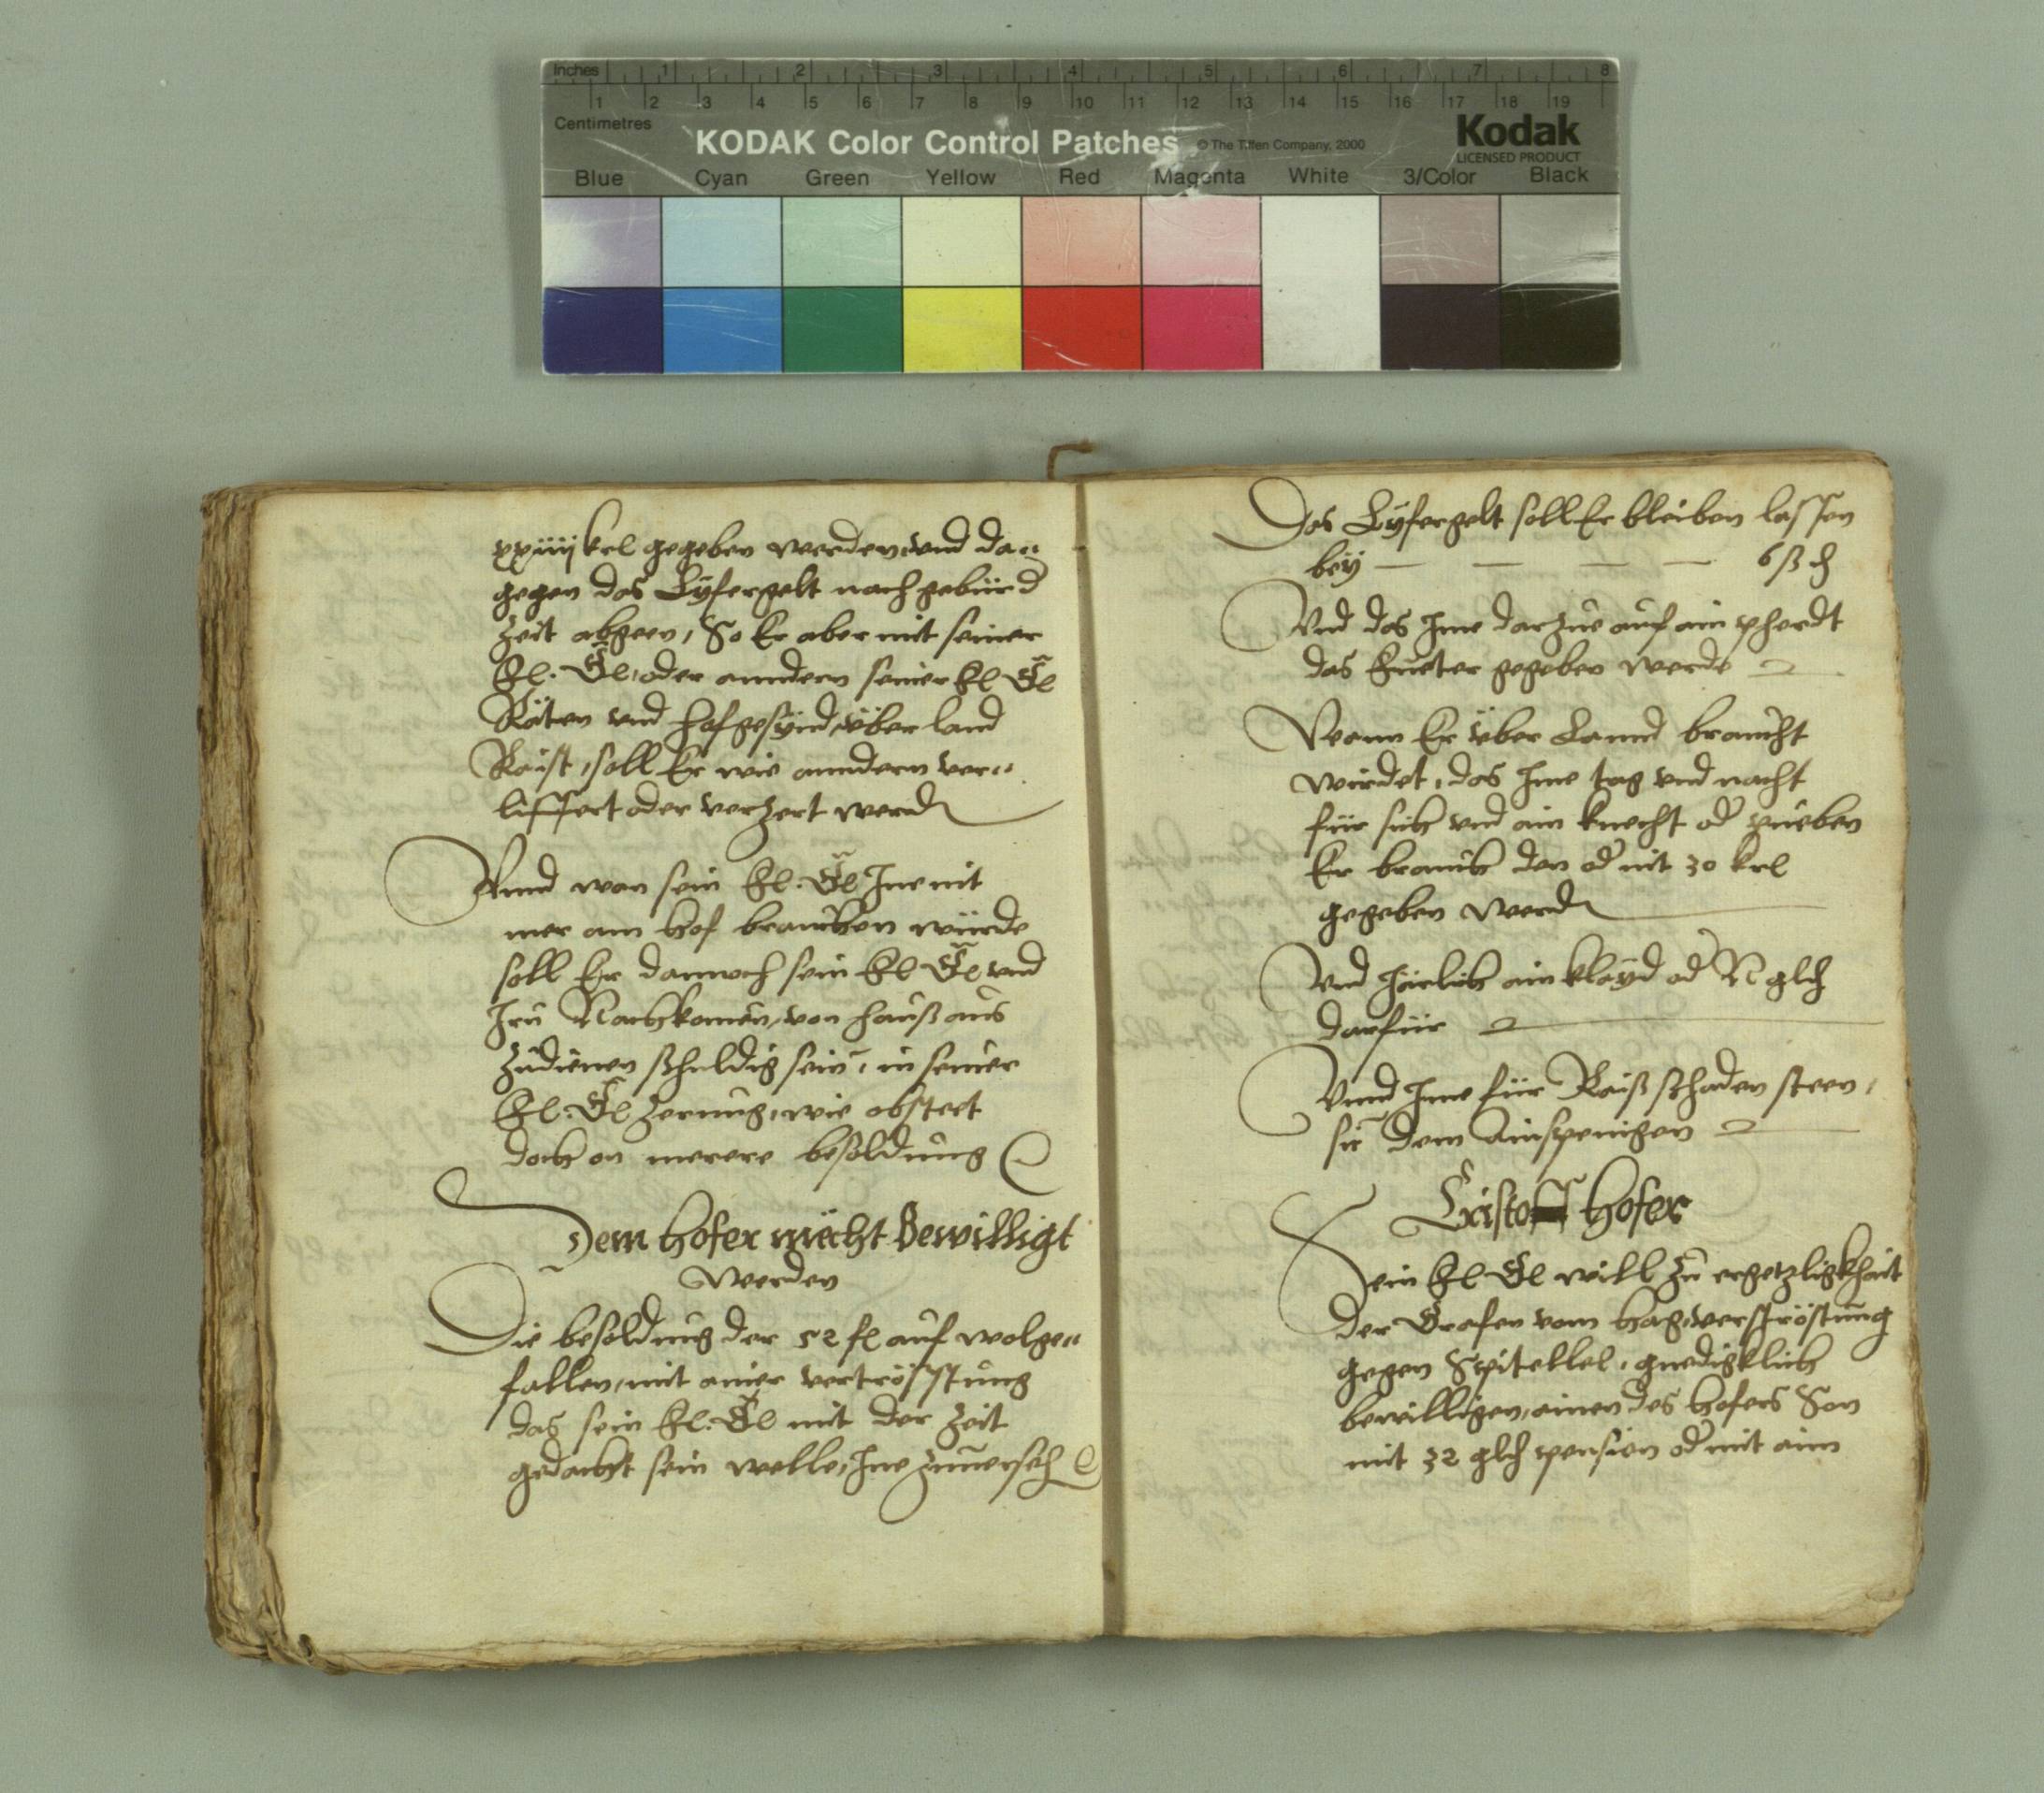 Inches 1 2 3 4 5 6 7 8
1 2 3 4 5 6 7 8 9 10 11 12 13 14 15 16 17 18 19
Centimetres
KODAK Color Control Patches © The Tiffen Company, 2000
Kodak
LICENSED PRODUCT
Blue Cyan Green Yellow Red Magenta White 3/Color Black
xxiiij krl gegeben werden, vnd da„
gegen das Lyfergelt nach gebürd
Zeit abgeen, So Er aber mit seiner
Fl. Gl, oder anndern seiner Fl Gl
Räten vnd hofgesynd, über land
Raist, soll Er wie anndern ver„
liffert oder verzert werd
Vnnd wan sein Fl. Gl Ine nit
mer am hof brauchen würde
soll Er dannoch sein Fl Gl, vnd
Irn Nachkomen, von hauß aus
zudienen schuldig sein, in seiner
Fl. Gl Zerung, wie obsteet
doch on merere besoldung
Dem hofer mächt Bewilligt
werden
Die besoldung der 52 fl auf wolge„
fallen, mit ainer vertröstung
das sein Fl. Gl mit der Zeit
gedacht sein welle, Ine zuuerseh
Das Lyfergelt soll Er bleiben lassen
bey — — — — 6 ß d
Vnd das Ime darzue auf ain pherdt
das Fueter gegeben werde
Wann Er über Lannd braucht
wirdet, das Ime tag vnd nacht
für sich vnd ain knecht od pueben
Er brauch den od nit 30 krl
gegeben werd
Vnd Järlich ain klayd od N gld
darfür
Vnnd Ime für Raißschaden steen,
dem Ainspenigen
Cristoff hofer
Sein Fl Gl will zu ergetzligkhait
der Grafen vom hag, verströstung
gegen Spitellel, gnedigklich
bewilligen, ainen des hofers Son
mit 32 gld pension od mit aim